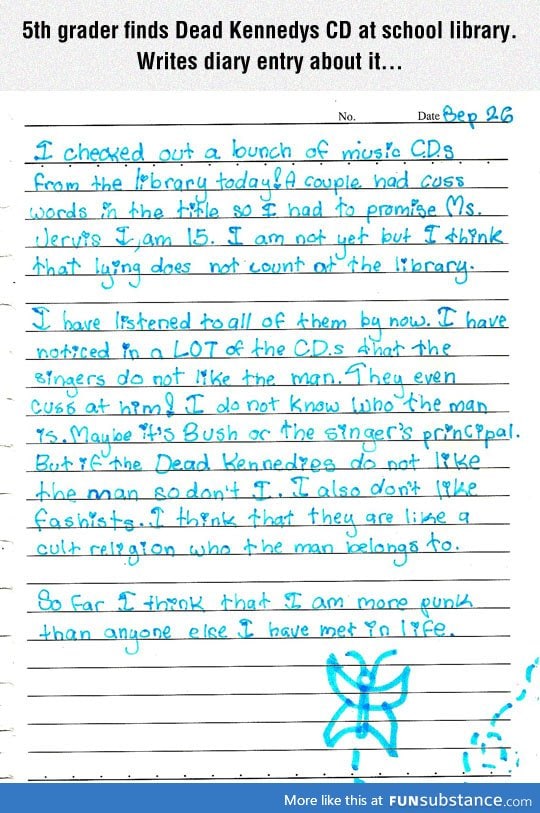 5th grader finds Dead Kennedys CD at school library.
Writes diary entry about it...
No. Date Sep 26
I checked out a bunch of music C.D.s
from the library today! A couple had cuss
words in the title so I had to promise Ms.
Jervis I am 15. I am not yet but I think
that lying does not count at the library.
I have listened to all of them by now. I have
noticed in a LOT of the C.D.s that the
singers do not like the man. They even
cuss at him! I do not know who the man
is. Maybe it's Bush or the singer's principal.
But if the Dead Kennedies do not like
the man so don't I. I also don't like
fashists. I think that they are like a
cult religion who the man belongs to.
So far I think that I am more punk
than anyone else I have met in life.
More like this at FUNsubstance.com!